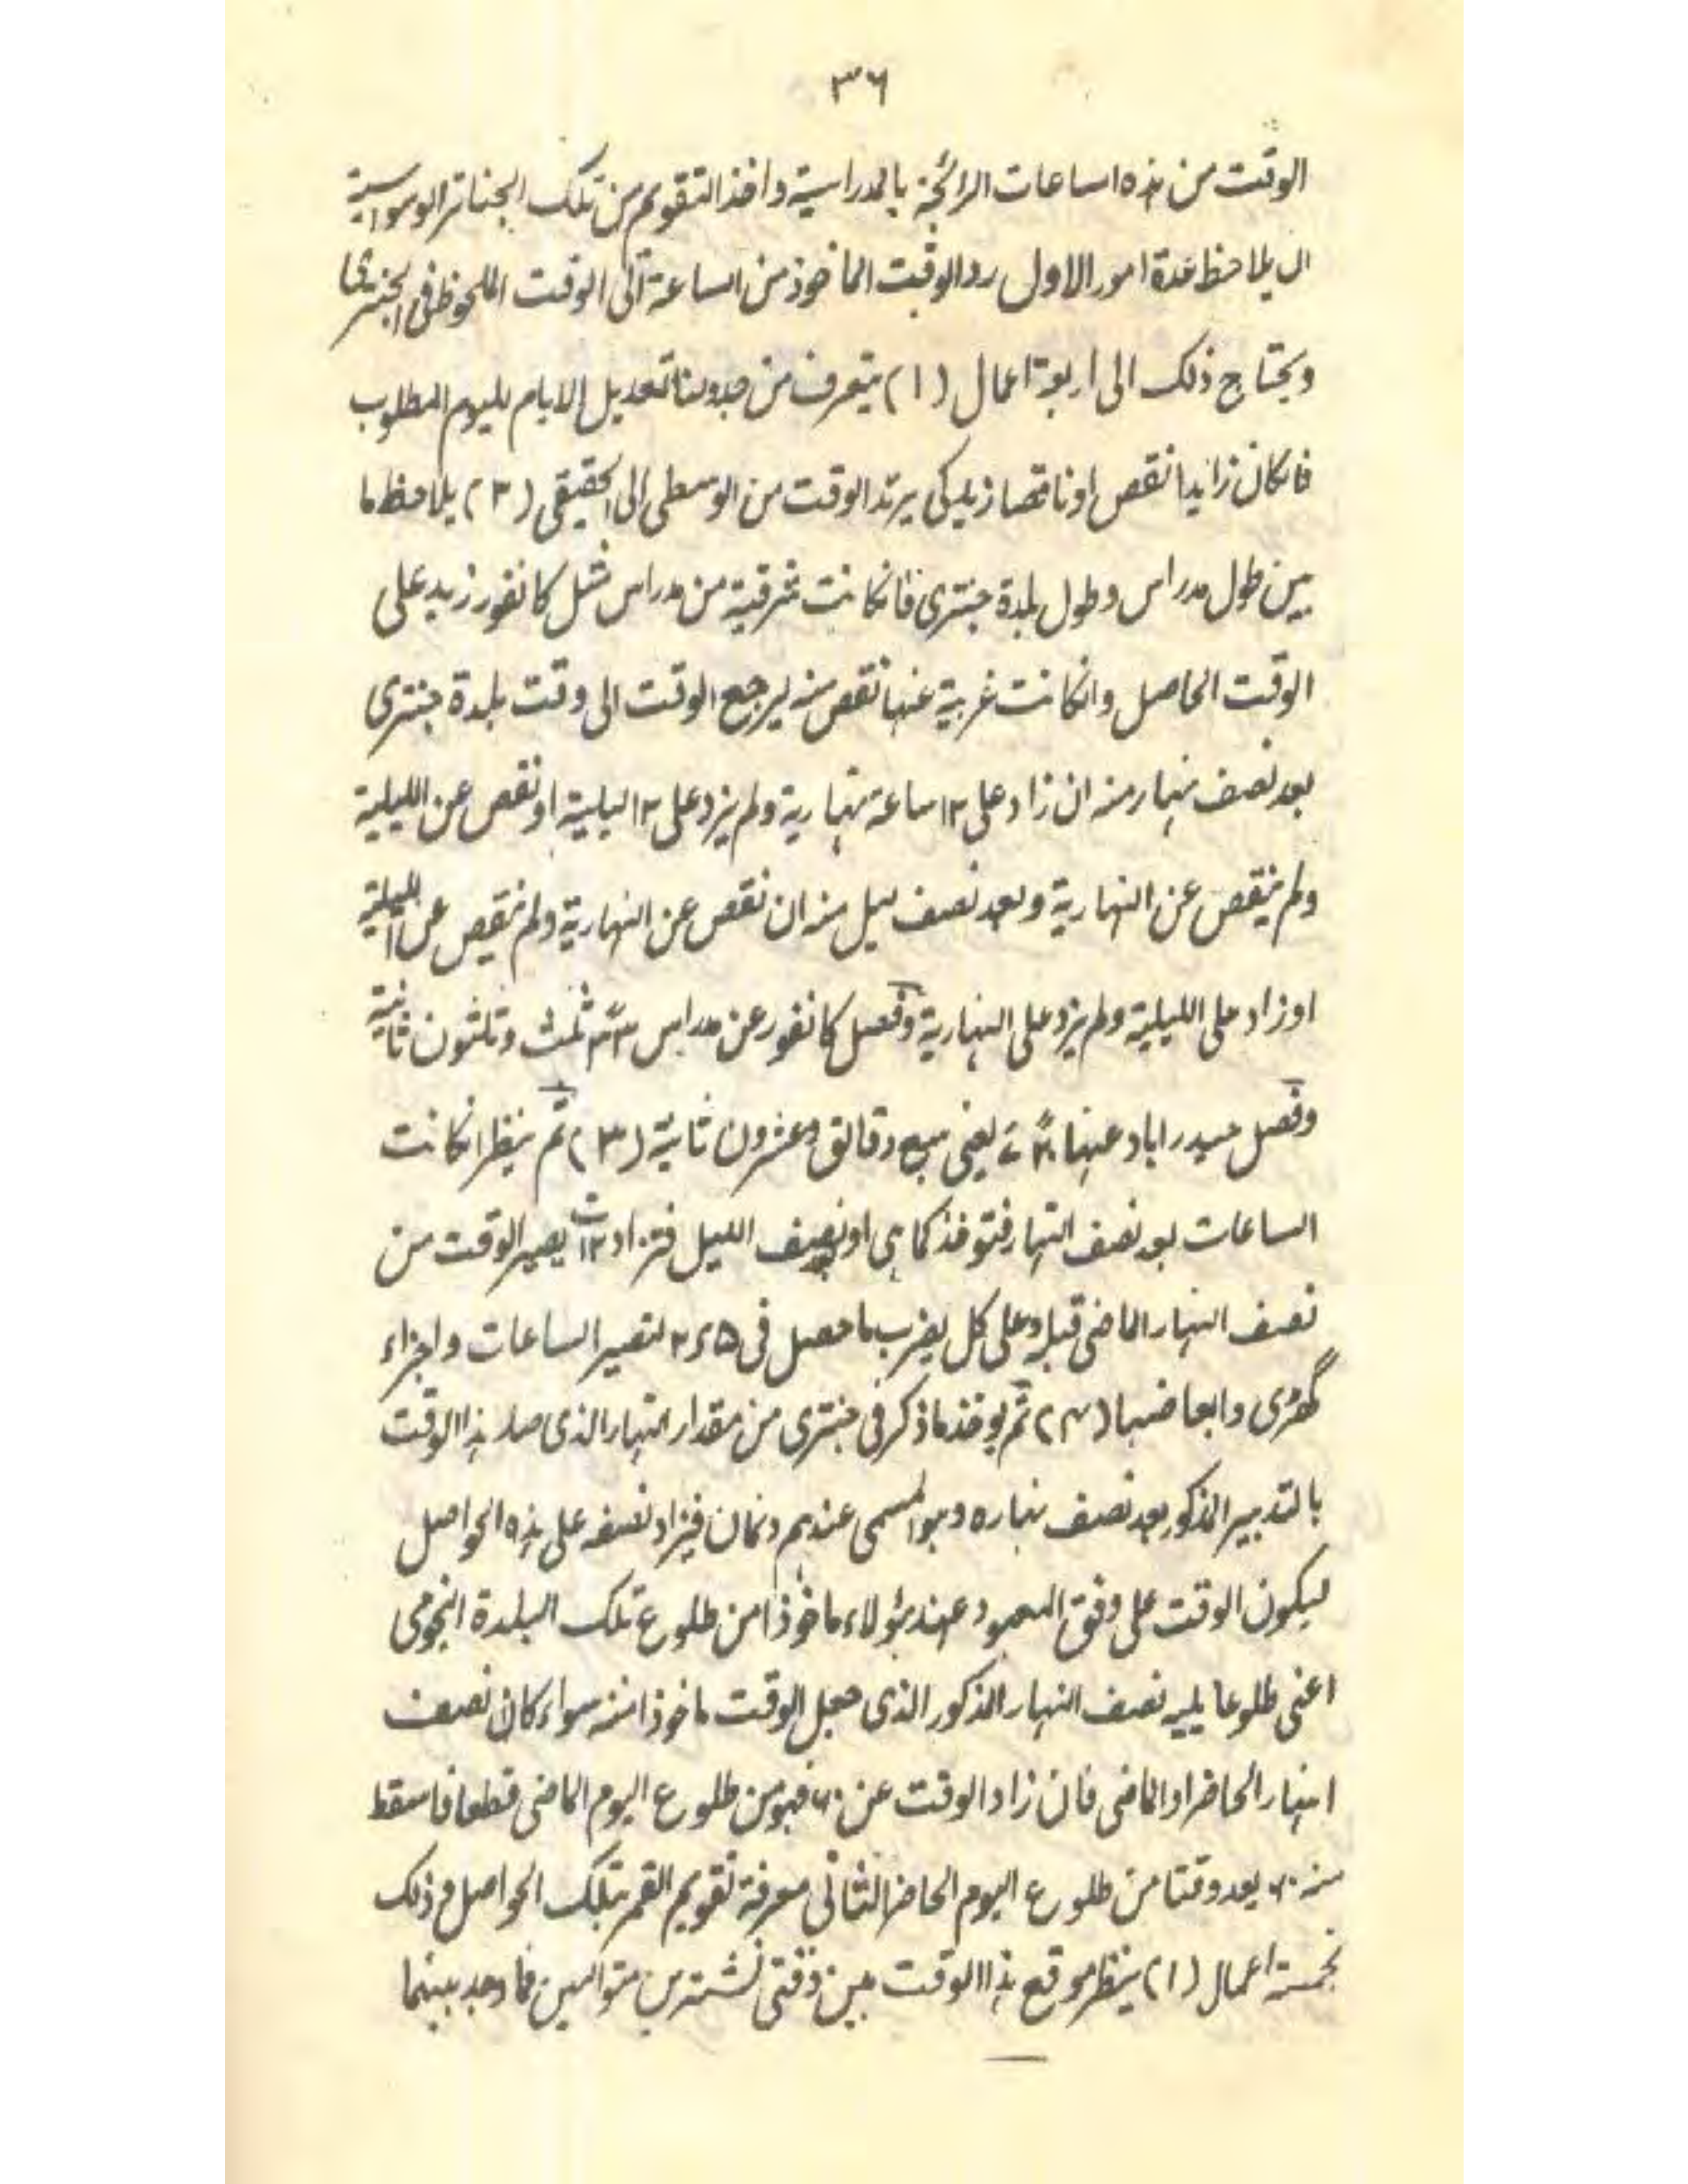 ٣٦
الوقت من هذه الساعات الرائجة بالمدراسية واخذ التقويم من تلك الجناتر الوسواسية
ان يلاحظ عدة امور الاول رد الوقت الماخوذ من الساعة الى الوقت الملحوظ فى الجنترى
ويحتاج ذلك الى اربعة اعمال (١) يتعرف من جدولنا تعديل الايام لليوم المطلوب
فانكان زايدا نقص او ناقصا زيد كى يرتد الوقت من الوسطى الى الحقيقى (٢) يلاحظ ما
بين طول مدراس وطول بلدة جنترى فانكانت شرقية من مدراس مثل كانفور زيد على
الوقت الحاصل وانكانت غربية عنها نقص منه ليرجع الوقت الى وقت بلدة جنترى
بعد نصف نهار منه ان زاد على ١٢ ساعة نهارية ولم يزد على ١٢ ليلية او نقص عن الليلية
ولم ينقص عن النهارية وبعد نصف ليل منه ان نقص عن النهارية ولم ينقص عن الليلية
او زاد على الليلية ولم يزد على النهارية وفصل كانفور عن مدراس ثلث وثلثون ثانية
وفصل حيدراباد عنها يعنى سبع دقائق وعشرون ثانية (٣) ثم ينظر انكانت
الساعات بعد نصف النهار فتوخذ كما هى او نصف الليل فتزاد ١٢ يصير الوقت من
نصف النهار الماضى قبله وعلى كل يضرب ما حصل فى ٢٫٥ لتصير الساعات واجزاء
گهڑى وابعاضها (٤) ثم يوخذ ما ذكر فى جنترى من مقدار النهار الذى صار هذا الوقت
بالتدبير المذكور بعد نصف نهاره وهو المسمى عندهم دنمان فيزاد نصفه على هذه الحواصل
ليكون الوقت على وفق المعهود عند هؤلاء ماخوذا من طلوع تلك البلدة النجومى
اعنى طلوعا يليه نصف النهار المذكور الذى جعل الوقت ماخوذا منه سواء كان نصف
النهار الحاضر او الماضى فان زاد الوقت عن ٦٠ فهو من طلوع اليوم الماضى قطعا فاسقط
منه ٦٠ يعد وقتا من طلوع اليوم الحاضر الثانى معرفة تقويم القمر بتلك الحواصل وذلك
بخمسة اعمال (١) ينظر موقع هذا الوقت بين وقتى متواليين فما وجد بينهما